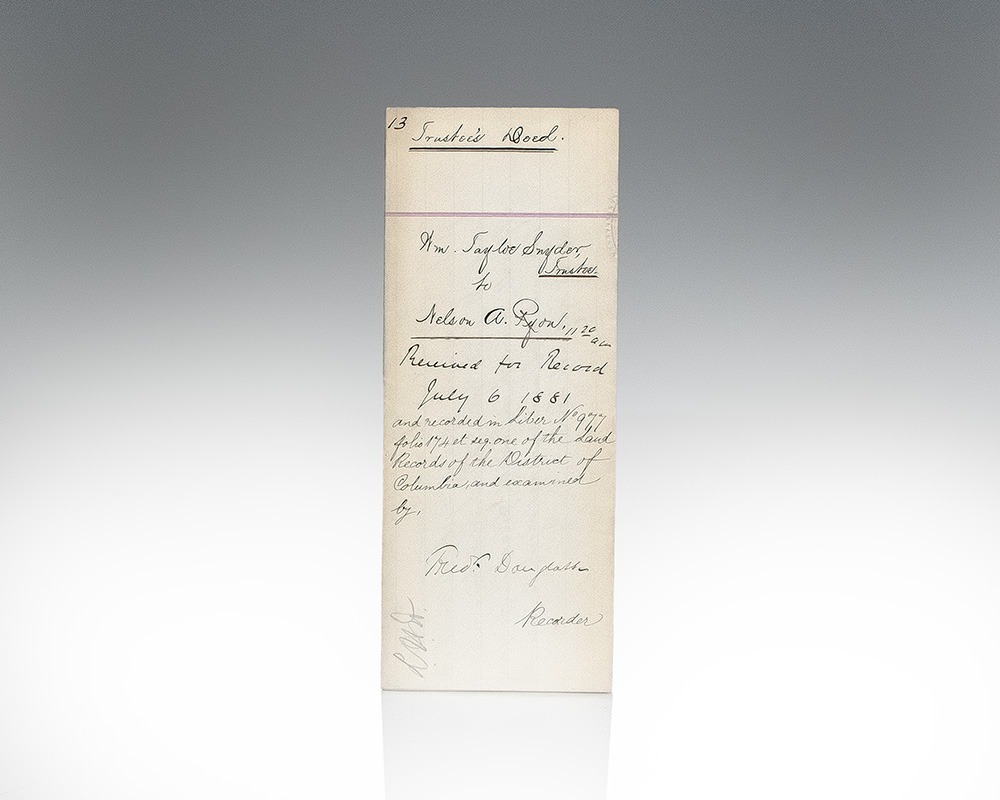 13
Trustee's Deed.
Wm. Tayloe Snyder,
Trustee
to
Nelson A. Ryon.
11 20 am
Received for Record
July 6 1881
and recorded in Liber No 977
folio 174 et seq. one of the Land
Records of the District of
Columbia, and examined
by,
Fredk Douglass
Recorder